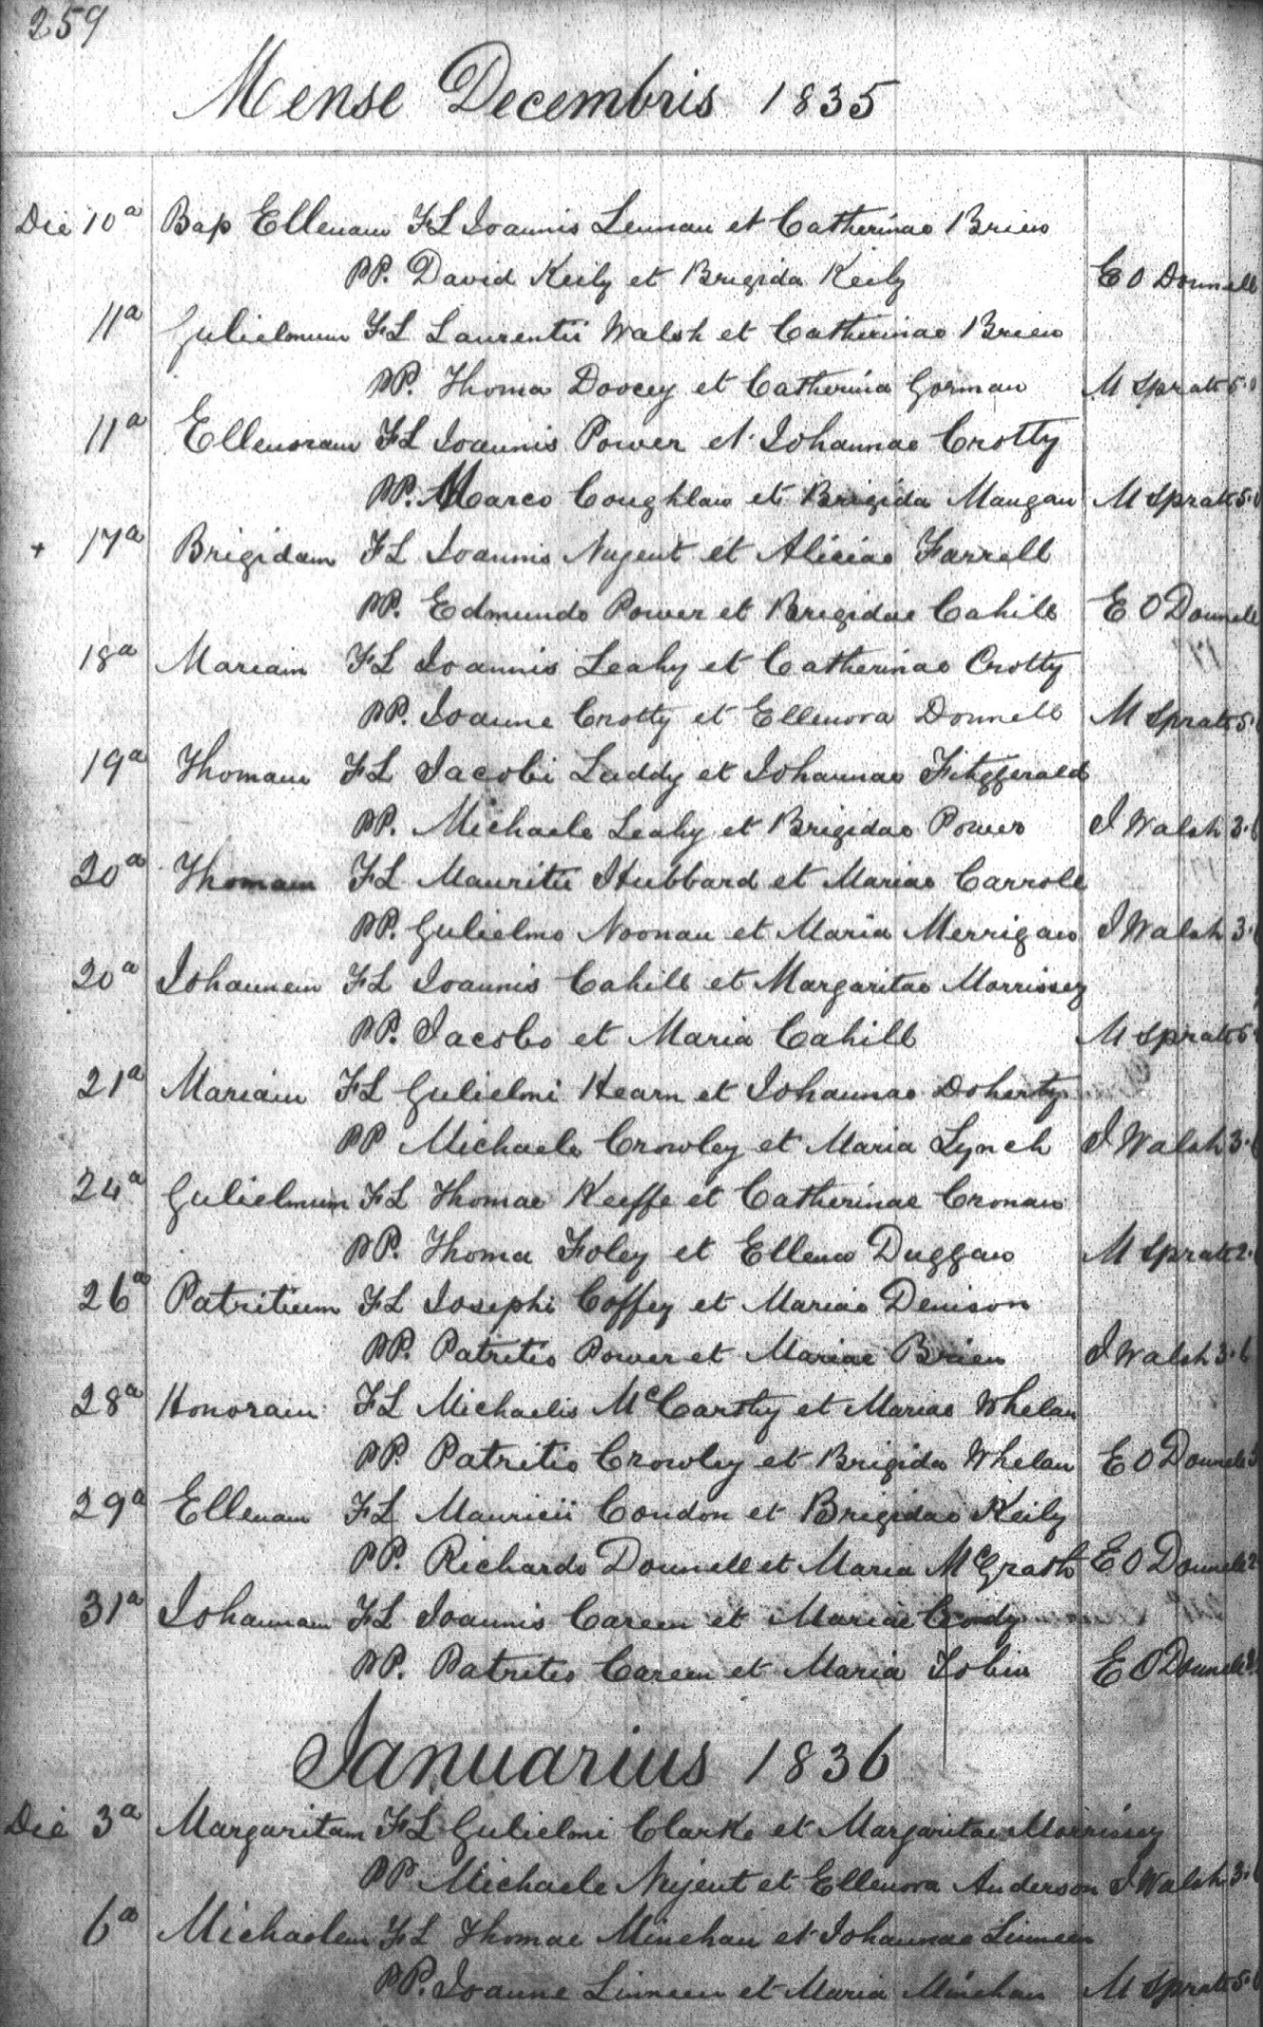 259
Mense Decembris 1835
Die 10a Bap Ellenam FL Joannis Lennan et Catherinae Brien
PP. David Keily et Brigida Keily E O Donnell
11a Gulielmum FL Laurentii Walsh et Catherinae Brien
PP. Thoma Doocey et Catherina Gorman M Spratt 5.0
11a Ellenoram FL Joannis Power et Johannae Crotty
PP. Marco Coughlan et Brigida Mangan M Spratt 5.
+ 17a Brigidam FL Joannis Nugent et Aliciae Farrell
PP. Edmundo Power et Brigidae Cahill E O Donnell
18a Mariam FL Joannis Leahy et Catherinae Crotty
PP. Joanne Crotty et Ellenora Donnell M Spratt 5.
19a Thomam FL Jacobi Laddy et Johannae Fitzgerald
PP. Michaele Leahy et Brigidae Power J Walsh 3.
20a Thomam FL Mauritii Hubbard et Mariae Carroll
PP. Gulielmo Noonan et Maria Merrigan J Walsh 3.
20a Johannem FL Joannis Cahill et Margaritae Morrissey
PP. Jacobo et Maria Cahill M Spratt 5
21a Mariam FL Gulielmi Hearn et Johannae Doherty
PP Michaele Crowley et Maria Lynch J Walsh 3.
24a Gulielmum FL Thomae Keeffe et Catherinae Cronan
PP. Thoma Foley et Ellena Duggan M Spratt 2.
26a Patritium FL Josephi Coffey et Mariae Denison
PP. Patritio Power et Mariae Brien J Walsh 3.6
28a Honoram FL Michaelis McCarthy et Mariae Whelan
PP. Patritio Crowley et Brigida Whelan E O Donnell
29a Ellenam FL Mauricii Condon et Brigidae Keily
PP. Richardo Donnell et Maria McGrath E O Donnell 2
31a Johannam FL Joannis Careen et Mariae
PP. Patritio Careen et Maria Tobin E O Donnell
Januarius 1836
Die 3a Margaritam FL Gulielmi Clarke et Margaritae Morrissey
PP Michaele Nujent et Ellenora Anderson J Walsh 3.
6a Michaelem FL Thomae Minehan et Johannae Linneen
PP. Joanne Linneen et Maria Minehan M Spratt 5.